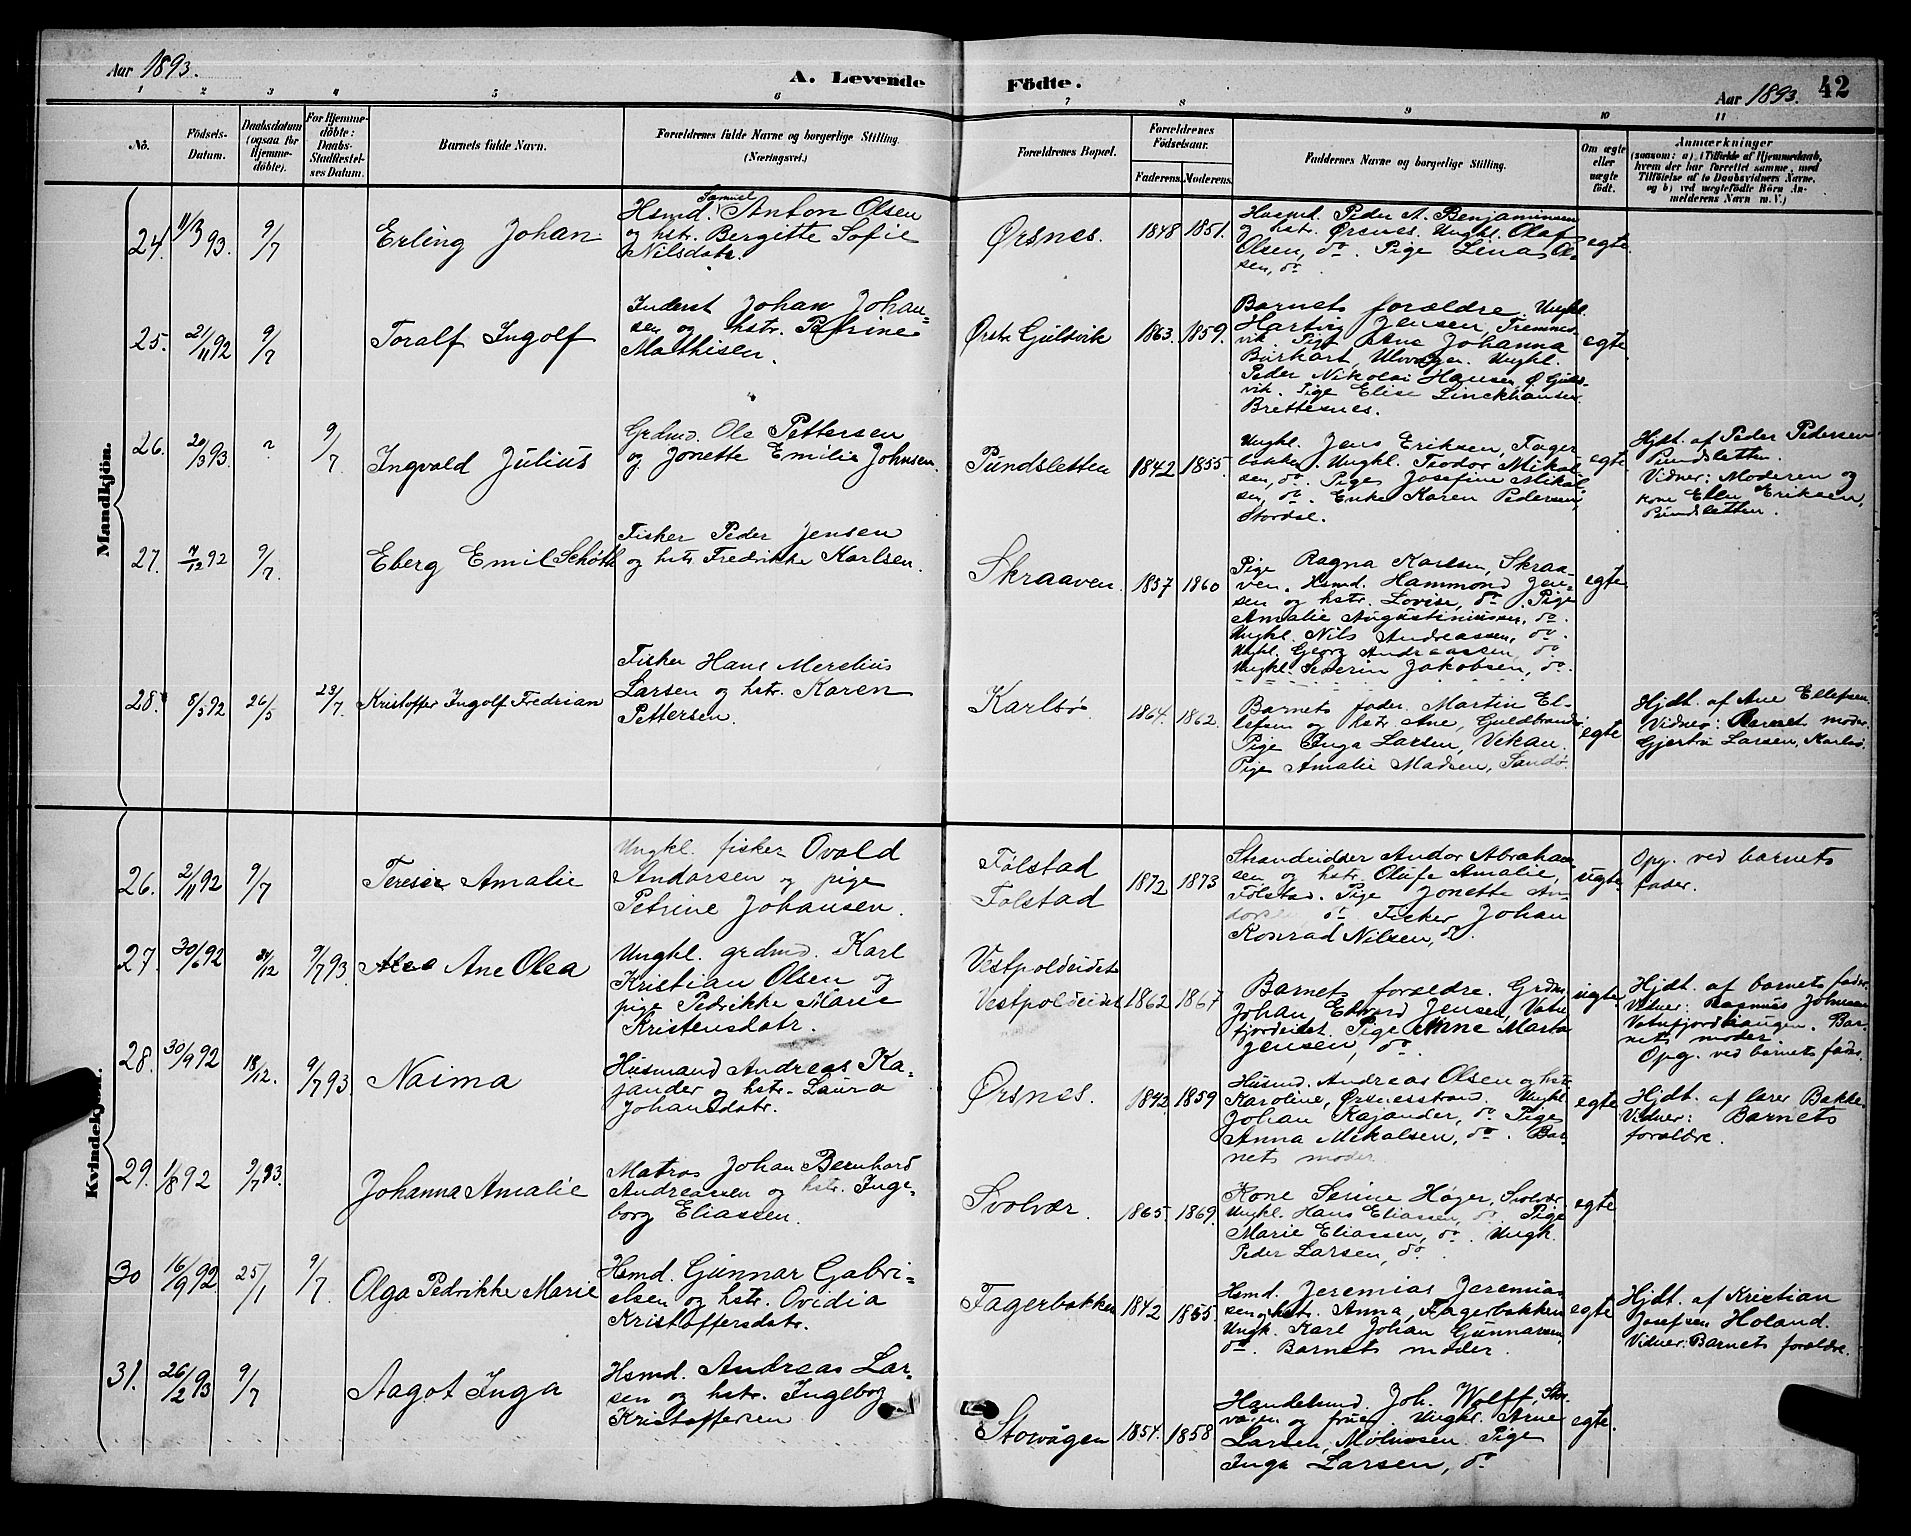 Aar 1893.
A. Levende Födte.
Aar 1893. 42
1 2 3 4 5 6 7 8 9 10 11
No.
Födsels-
Datum.
Daabsdatum
(ogsaa for
Hjemme-
döbte).
For Hjemme-
döbte:
Daabs-
Stadfæstel-
ses Datum.
Barnets fulde Navn.
Forældrenes fulde Navne og borgerlige Stilling
(Næringsvei.)
Forældrenes Bopæl.
Forældrenes
Födselsaar.
Faderens. Moderens.
Faddernes Navne og borgerlige Stilling.
Om ægte
eller
uægte
født.
Anmærkninger
(saasom: a) i Tilfælde af Hjemmedaab,
hvem der har forrettet samme, med
Tilföielse af to Daabsvidners Navne,
og b) ved uægtefödte Börn An-
melderens Navn m. V.)
Mandkjön.
24. 11/3 93. 9/7
Erling Johan
Hsmd. Samuel Anton Olsen
og hstr. Bergitte Sofie
Nilsdatr.
Ørsnes. 1848 1851.
Husmd. Peder A. Benjaminsen
og hstr. Ørsnes. Ungkl. Olaf
Olsen, do. Pige Lina Ol-
sen, do.
egte.
25. 21/11 92 9/7
Toralf Ingolf
Inderst Johan Johan-
sen og hstr. Petrine
Mathisen.
Østr Guldvik 1863. 1859.
Barnets forældre. Ungkl.
Hartvig Jensen, Tremmes-
vik. Pige Ane Johanna
Burkart, Ulvaagen. Ungkl.
Peder Nikolai Hansen, Ø Guld-
vik. Pige Elise Linckhausen
Brettesnes.
egte
26. 20/3 93. ? 9/7
Ingvald Julius
Grdmd. Ole Pettersen
og Jonette Emilie Johnsen.
Pundsletten 1842 1855.
Ungkl. Jens Eriksen, Fager-
bakken. Ungkl. Teodor Mikal-
sen, do. Pige Josefine Mikal-
sen, do. Enke Karen Pedersen,
egte
Hjdt. af Peder Pedersen
Pundsletten.
Vidner: Moderen og
kone Ellen Eriksen,
Pundsletten.
27. 7/12 92 9/7.
Eberg Emil Schøth
Fisker Peder Jensen
og hstr Fredrikke Karlsen.
Skraaven. 1857 1860
Pige Ragna Karlsen, Skraa-
ven. Hsmd. Hammond Jen-
sen og hstr. Lovise, do. Pige
Amalie Augustinussen, do.
Ungkl. Nils Andreassen, do.
Ungkl. Georg Andreassen, do.
Ungkl. Severin Jakobsen, do.
egte.
28. 8/3 92 26/5 23/7.
Kristoffer Ingolf Fredrian
Fisker Hans Merelius
Larsen og hstr. Karen
Pettersen.
Karlsø. 1864. 1862.
Barnets fader. Martin El-
lefsen og hstr Ane, Guldbrandsø.
Pige Inga Larsen, Vikan.
Pige Amalie Madsen, Sandø.
egte
Hjdt. af Ane Ellefsen.
Vidner: Barnet moder.
Gjertrü Larsen, Karlsø.
Kvindekjön.
26. 2/11 92 9/7
Terese Amalie
Ungkl. fisker Ovald
Andorsen og pige
Petrine Johansen.
Følstad
Følstad 1872 1873
Strandsidder Andor Abraham-
sen og hstr. Olufa Amalie,
Følstad. Pige Jonette An-
dorsen, do. Fisker Johan
Konrad Nilsen, do.
uegte.
Opg. ved barnets
fader.
27. 30/6 92 31/12 9/7 93
Ane Olea
Ungkl. grdmd. Karl
Kristian Olsen og
pige Pedrikke Marie
Kristensdatr.
Vestpoldeidet
Vestpoldeidet 1862 1867
Barnets forældre. Grdm.
Johan Edvard Jensen, Vatn-
fjordeidet. Pige Anne Marta
Jensen, do.
uegte.
Hjdt. af barnets fader.
Vidner: Rasmus Johnsen
Vatnfjordhaugen. Bar-
nets moder.
Opg. ved barnets fader.
28. 30/9 92 18/12. 9/7 93
Naima
Husmand Andreas Ka-
jander og hstr. Laura
Johansdatr.
Ørsnes. 1842 1859
Husmd. Andreas Olsen og hstr.
Karoline, Ørsnesstrand. Ungkl
Johan Kajander, do. Pige
Anna Mikalsen, do. Bar-
nets moder
egte
Hjdt. af lærer Bakke.
Vidner: Barnets
forældre.
29. 1/8 92 9/7 93.
Johanna Amalie
Matros Johan Bernhard
Andreassen og hstr. Inge-
borg Eliassen.
Svolvær. 1865. 1869.
Kone Serine Høyer, Svolvær
Ungkl. Hans Eliassen, do. Pige
Marie Eliassen, do. Ungk.
Peder Larsen, do.
egte
30 16/9 92 25/1 9/7
Olga Pedrikke Marie
Hsmd. Gunnar Gabri-
elsen og hstr. Ovidia
Kristoffersdatr.
Fagerbakken 1842 1855.
Hsmd. Jeremias Jeremias-
sen og hstr. Anna, Fagerbakken
Ungk. Karl Johan Gunnarsen,
do. Barnets moder.
egte
Hjdt. af Kristian
Josefsen Holand.
Vidner: Barnets forældre.
31. 26/2 93 9/7
Aagot Inga
Hsmd. Andreas Lar-
sen og hstr. Ingeborg
Kristoffersen
Storvågen 1854. 1858
Handelsmd. Joh. Wolff, Stor-
vågen og frue. Ungkl. Arne
Larsen, Molnosen. Pige
Inga Larsen, do
egte.